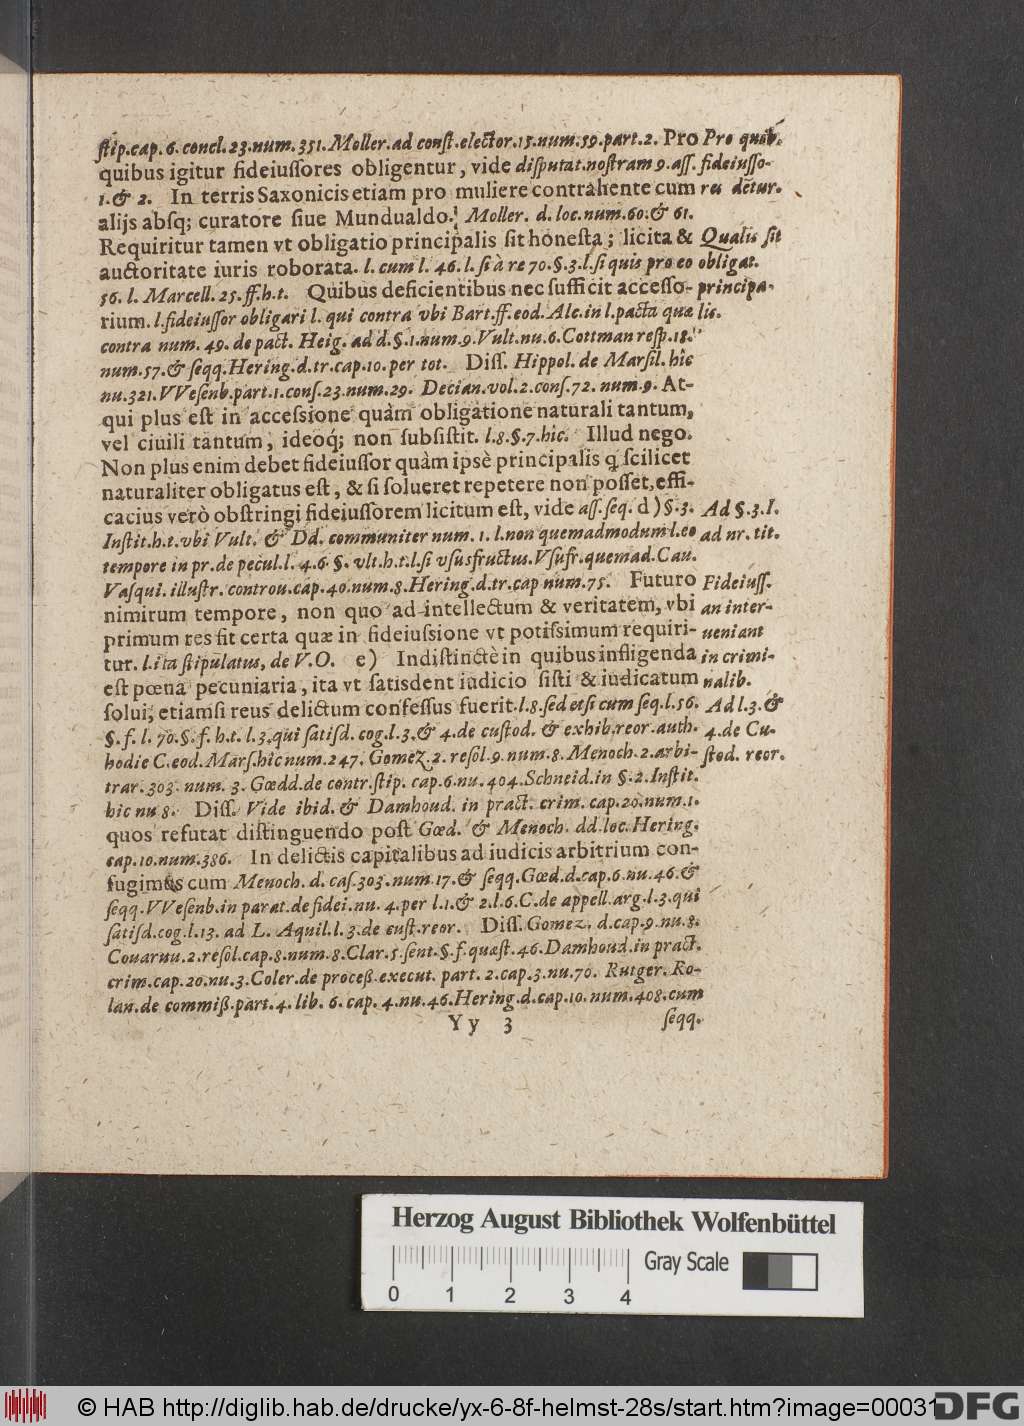 ſtip.cap.6.concl.23.num.351.Moller.ad conſt.elector.15.num.59.part.2. Pro
quibus igitur fideiuſſores obligentur, vide diſputat.noſtram 9.aſſ.
1.& 2. In terris Saxonicis etiam pro muliere contrahente cum
alijs abſq; curatore ſiue Mundualdo. Moller. d. loc.num.60.& 61.
Requiritur tamen vt obligatio principalis ſit honeſta; licita &
auctoritate iuris roborata. l. cum l. 46. l. ſi à re 70.§.3.l.ſi quis pro eo
56. l. Marcell. 25. ff.h.t. Quibus deficientibus nec ſufficit acceſſo-
rium. l.fideiuſſor obligari l. qui contra vbi Bart.ff.eod.Alc.in l.pacta quæ
contra num. 49. de pact. Heig. ad d.§.1.num.9.Vult.nu.6.Cottman reſp.18.
num.57.& ſeqq.Hering.d.tr.cap.10.per tot. Diſſ. Hippol. de Marſil. hîc
nu.321.VVeſenb.part.1.conſ.23.num.29. Decian.vol.2.conſ.72. num.9. At-
qui plus eſt in acceſsione quàm obligatione naturali tantum,
vel ciuili tantum, ideoq́; non ſubſiſtit. l.8.§.7.hîc. Illud nego.
Non plus enim debet fideiuſſor quàm ipsè principalis q ſcilicet
naturaliter obligatus eſt, & ſi ſolueret repetere non poſſet, effi-
cacius verò obſtringi fideiuſſorem licitum eſt, vide aſſ.ſeq. d) §.3.
Inſtit.h.t.vbi Vult. & Dd. communiter num. 1. l.non quemadmodum l.eo
tempore in pr.de pecul.l. 4.6. §. vlt.h.t.l.ſi vſusfructus.Vſufr.quemad.Cau.
Vaſqui. illuſtr. controu.cap.40.num.8.Hering.d.tr.cap num.75. Futuro
nimirum tempore, non quo ad intellectum & veritatem, vbi
primum res ſit certa quæ in fideiuſsione vt potiſsimum requiri-
tur. l.ita ſtipulatus, de V.O. e) Indiſtinctè in quibus infligenda
eſt pœna pecuniaria, ita vt ſatisdent iudicio ſiſti & iudicatum
ſolui, etiamſi reus delictum confeſſus fuerit. l.8.ſed etſi cum ſeq.l.56.
§. f. l. 70.§. f. h.t. l.3.qui ſatiſd. cog.l.3.& 4.de cuſtod. & exhib.reor.auth.
hodie C.eod.Marſ.hîc num.247. Gomez.2. reſol.9.num.8. Menoch.2.arbi-
trar.303. num. 3. Gœdd.de contr.ſtip. cap.6.nu.404.Schneid.in §.2.Inſtit.
hîc nu 8. Diſſ. Vide ibid. & Damhoud. in pract. crim. cap.20.num.1.
quos refutat diſtinguendo poſt Gœd. & Menoch. dd.loc.Hering.
cap.10.num.386. In delictis capitalibus ad iudicis arbitrium con-
fugimus cum Menoch. d. caſ.303.num.17.& ſeqq.Gœd.d.cap.6.nu.46.&
ſeqq.VVeſenb.in parat.de fidei.nu. 4.per l.1.& 2.l.6.C.de appell.arg.l.3.qui
ſatiſd.cog.l.13. ad L. Aquil.l.3.de cuſt.reor. Diſſ. Gomez. d.cap.9.nu.8.
Couaruu.2.reſol.cap.8.num.8.Clar.5.ſent.§.f.quæſt.46.Damhoud.in pract.
crim.cap.20.nu.3.Coler.de proceß.execut. part.2.cap.3.nu.70. Rutger. Ro-
lan.de commiß.part.4. lib. 6. cap. 4.nu.46.Hering.d.cap.10.num.408.cum
Yy 3
ſeqq.
Pro quib.
fideiuſſo-
res dẽtur.
Qualis ſit
obligat.
principa-
lis.
Ad §.3.I.
ad nr. tit.
Fideiuſſ.
an inter-
ueniant
in crimi-
nalib.
Ad l.3.&
4.de Cu-
ſtod. reor.
Herzog August Bibliothek Wolfenbüttel
Gray Scale
0 1 2 3 4
© HAB http://diglib.hab.de/drucke/yx-6-8f-helmst-28s/start.htm?image=00031
DFG